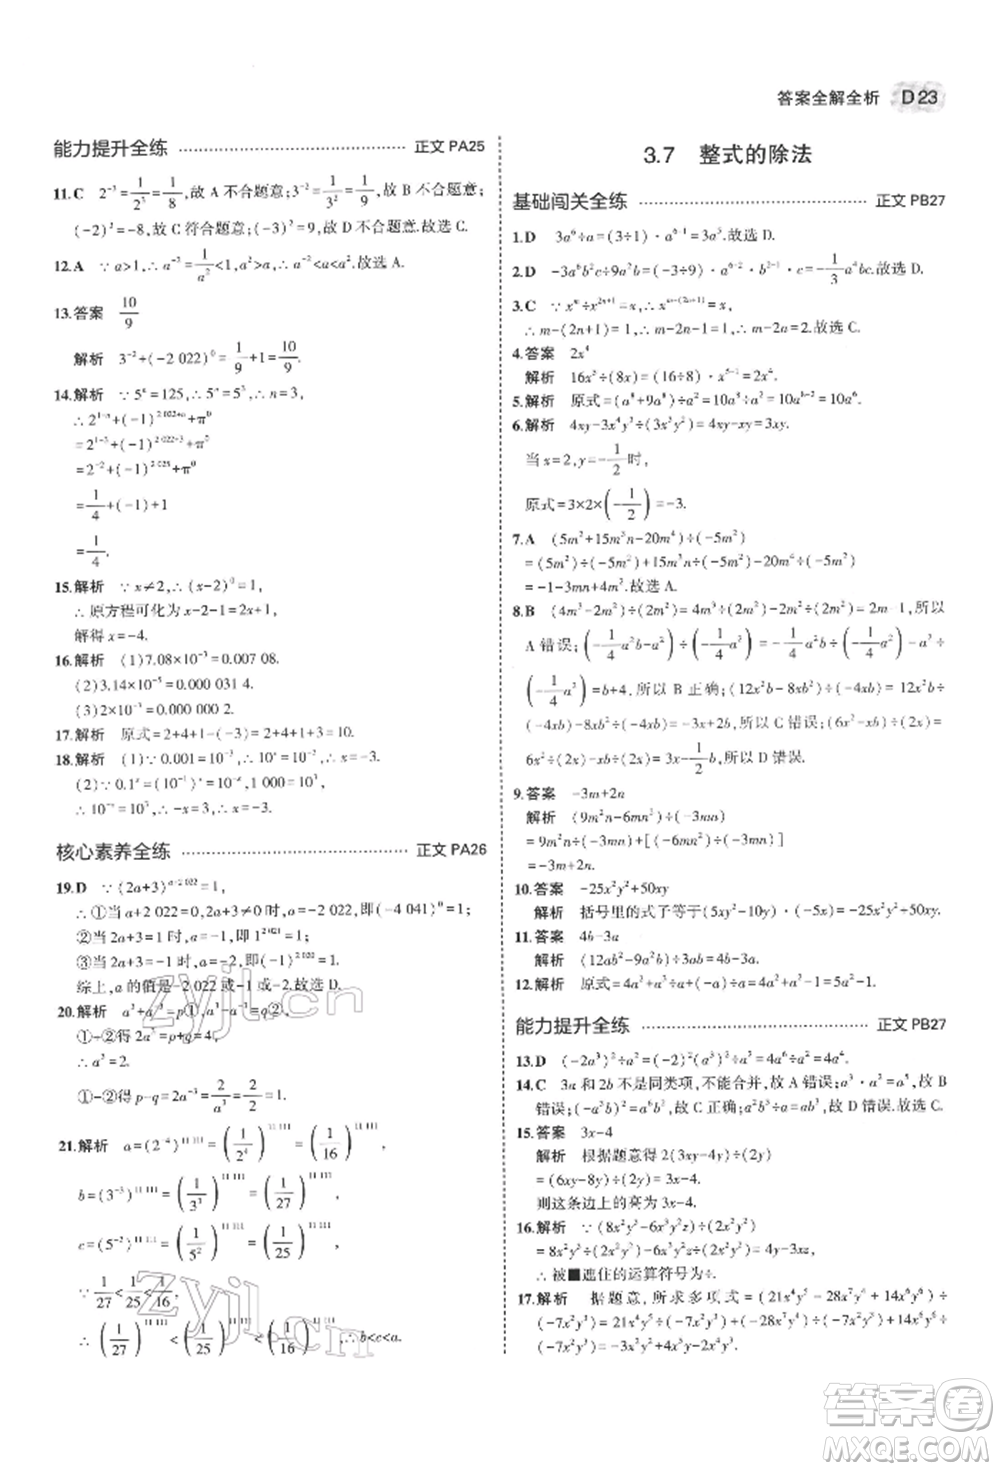 答案全解全析 D23
能力提升全练 正文 PA25
11.C 2⁻³=1/2³=1/8,故 A 不合题意;3⁻²=1/3²=1/9,故 B 不合题意;
(-2)³=-8,故 C 符合题意;(-3)²=9,故 D 不合题意.故选 C.
12.A ∵a>1,∴a⁻²=1/a²<1,a²>a,∴a⁻²<a<a².故选 A.
13.答案 10/9
解析 3⁻²+(-2 022)⁰=1/9+1=10/9.
14.解析 ∵5ⁿ=125,∴5ⁿ=5³,∴n=3,
=2⁻²+(-1)+π⁰
=1/4+(-1)+1
=1/4.
15.解析 ∵x≠2,∴(x-2)⁰=1,
∴原方程可化为 x-2-1=2x+1,
解得 x=-4.
16.解析 (1)7.08×10⁻³=0.007 08.
(2)3.14×10⁻⁵=0.000 031 4.
17.解析 原式=2+4+1-(-3)=2+4+1+3=10.
18.解析 (1)∵0.001=10⁻³,∴10ˣ=10⁻³,∴x=-3.
∴10⁻ˣ=10³,∴-x=3,∴x=-3.
核心素养全练 正文 PA26
∴①当 a+2 022=0 时,a=-2 022,即(-4 041)⁰=1;
综上,a 的值是-2 022 或-1 或-2.故选 D.
20.解析 a³+a⁻³=p①,a³-a⁻³=q②,
①+②得 2a³=p+q=4,
∴a³=2.
①-②得 p-q=2a⁻³=2/a³=2/2=1.
21.解析 a=(2⁻⁴)¹¹ ¹¹¹=(1/2⁴)¹¹ ¹¹¹=(1/16)¹¹ ¹¹¹,
b=(3⁻³)¹¹ ¹¹¹=(1/3³)¹¹ ¹¹¹=(1/27)¹¹ ¹¹¹,
c=(5⁻²)¹¹ ¹¹¹=(1/5²)¹¹ ¹¹¹=(1/25)¹¹ ¹¹¹,
∵1/27<1/25<1/16,
∴(1/27)¹¹ ¹¹¹<(1/25)¹¹ ¹¹¹<(1/16)¹¹ ¹¹¹,∴b<c<a.
3.7 整式的除法
基础闯关全练 正文 PB27
1.D 3a⁶÷a=(3÷1)·a⁶⁻¹=3a⁵.故选 D.
2.D -3a⁶b²c÷9a²b=(-3÷9)·a⁶⁻²·b²⁻¹·c=-1/3a⁴bc.故选 D.
3.C ∵xᵐ÷x²ⁿ⁺¹=x,∴xᵐ⁻⁽²ⁿ⁺¹⁾=x,
∴m-(2n+1)=1,∴m-2n=2.故选 C.
4.答案 2x⁴
解析 16x⁵÷(8x)=(16÷8)·x⁵⁻¹=2x⁴.
5.解析 原式=(a⁸+9a⁸)÷a²=10a⁸÷a²=10a⁸⁻²=10a⁶.
6.解析 4xy-3x⁴y³÷(3x³y²)=4xy-xy=3xy.
当 x=2,y=-1/2时,
原式=3×2×(-1/2)=-3.
7.A (5m²+15m³n-20m⁴)÷(-5m²)
=5m²÷(-5m²)+15m³n÷(-5m²)-20m⁴÷(-5m²)
=-1-3mn+4m².故选 A.
8.B (4m³-2m²)÷(2m²)=4m³÷(2m²)-2m²÷(2m²)=2m-1,所以
A 错误;(-1/4a²b-a²)÷(-1/4a²)=-1/4a²b÷(-1/4a²)-a²÷
(-1/4a²)=b+4,所以 B 正确;(12x²b-8xb²)÷(-4xb)=12x²b÷
(-4xb)-8xb²÷(-4xb)=-3x+2b,所以 C 错误;(6x²-xb)÷
(2x)=6x²÷(2x)-xb÷(2x)=3x-1/2b,所以 D 错误.
9.答案 -3m+2n
解析 (9m²n-6mn²)÷(-3mn)
=9m²n÷(-3mn)+[(-6mn²)÷(-3mn)]
=-3m+2n.
10.答案 -25x²y²+50xy
解析 括号里的式子等于(5xy-10)·(-5xy)=-25x²y²+50xy.
11.答案 4b-3a
解析 (12ab²-9a²b)÷(3ab)=4b-3a.
能力提升全练 正文 PB27
13.D (-2a³)²÷a²=(-2)²(a³)²÷a²=4a⁶÷a²=4a⁴.
14.C 3a 和 2b 不是同类项,不能合并,故 A 错误;a³·a²=a⁵,故 B
错误;(-ab³)²=a²b⁶,故 C 正确;2a²÷a=2a,故 D 错误.故选 C.
15.答案 3x-4
解析 根据题意可得 2(3xy-4y)÷(2y)
=(6xy-8y)÷(2y)=3x-4,
则这条边上的高为 3x-4.
∴被■遮住的运算符号为÷.
17.解析 据题意,所求多项式=(21x⁴y³-28x³y²+14x²y²)÷
(-7x²y)=21x⁴y³÷(-7x²y)-28x³y²÷(-7x²y)+14x²y²÷
zyjl.cn
zyjl.cn
答案圈
MXQE.COM